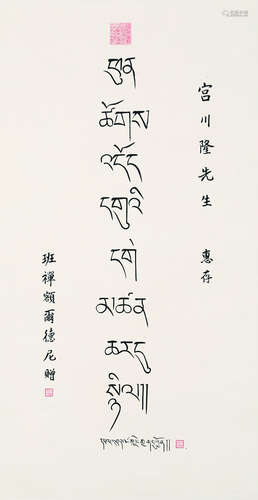 宫川隆先生 惠存
ཕུན
ཚོགས
འདོད
དགུའི
དགེ
མཚན
ཆརདུ
སྙིལ།།
班禪額爾德尼贈